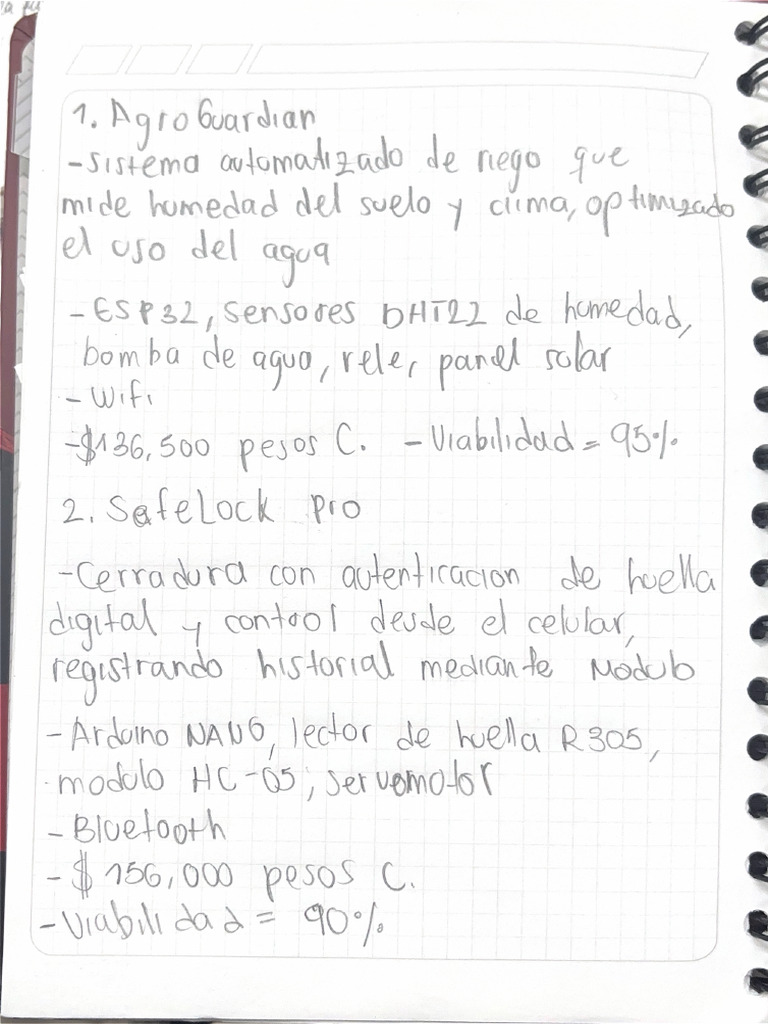 1. AgroGuardian
-Sistema automatizado de riego que
mide humedad del suelo y clima, optimizado
el uso del agua
-ESP32, sensores DHT22 de humedad,
bomba de agua, rele, panel solar
- Wifi
-$136,500 pesos C. - Viabilidad = 95%
2. SafeLock pro
-Cerradura con autenticacion de huella
digital y control desde el celular,
registrando historial mediante Modulo
-Arduino NANO, lector de huella R305,
modulo HC-05, servomotor
-Bluetooth
-$ 156,000 pesos C.
-Viabilidad = 90%